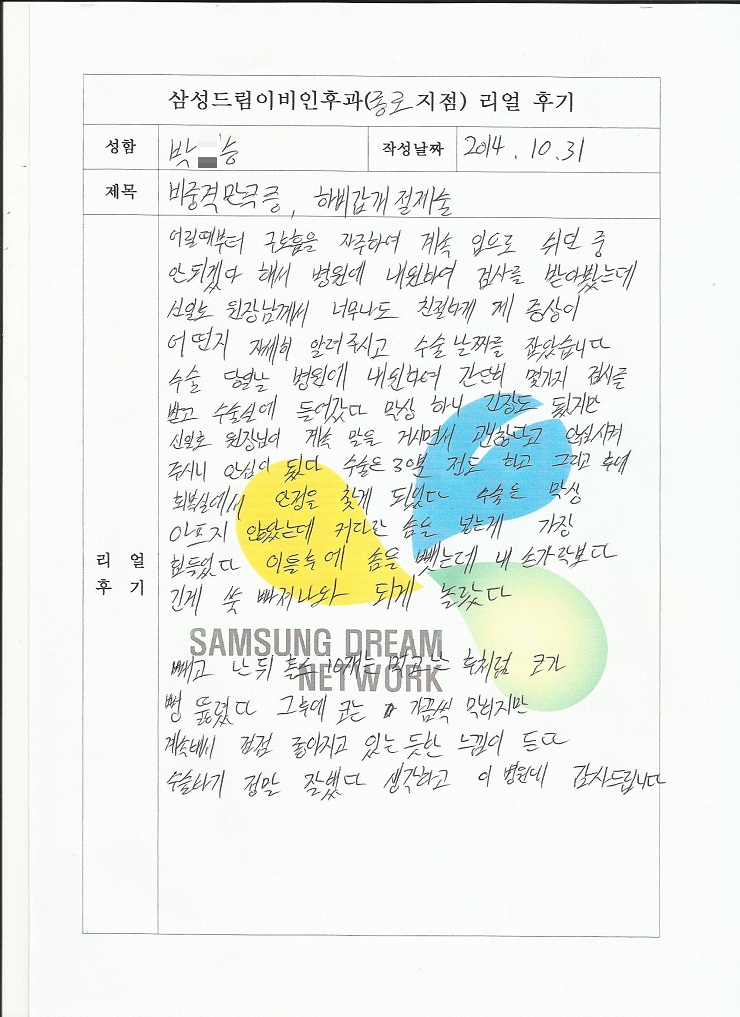 삼성드림이비인후과(종로 지점) 리얼 후기
성함 박 승 작성날짜 2014. 10. 31
제목 비중격만곡증, 하비갑개 절제술
어릴때부터 구호흡을 자주하여 계속 입으로 쉬던 중
안되겠다 해서 병원에 내원하여 검사를 받아봤는데
신일호 원장님께서 너무나도 친절하게 제 증상이
어떤지 자세히 알려주시고 수술날짜를 잡았습니다
수술 당일날 병원에 내원하여 간단히 몇가지 검사를
받고 수술실에 들어갔다 막상 하니 긴장도 됬지만
신일호 원장님이 계속 말을 거시면서 괜찮다고 안심시켜
주시니 안심이 됬다 수술은 30분 정도 하고 그리고 후에
회복실에서 안정을 찾게 되었다 수술은 막상
아프지 않았는데 커다란 솜을 넣는게 가장
힘들었다 이틀후에 솜을 뺏는데 내 손가락보다
긴게 쑥 빠져나와 되게 놀랐다
리얼
후기
SAMSUNG DREAM
NETWORK
빼고 난뒤 홀스 10개는 먹고난 후처럼 코가
뻥 뚫렸다 그후에 코는 가끔씩 막히지만
계속해서 점점 좋아지고 있는 듯한 느낌이 든다
수술하기 정말 잘했다 생각하고 이 병원에 감사드립니다